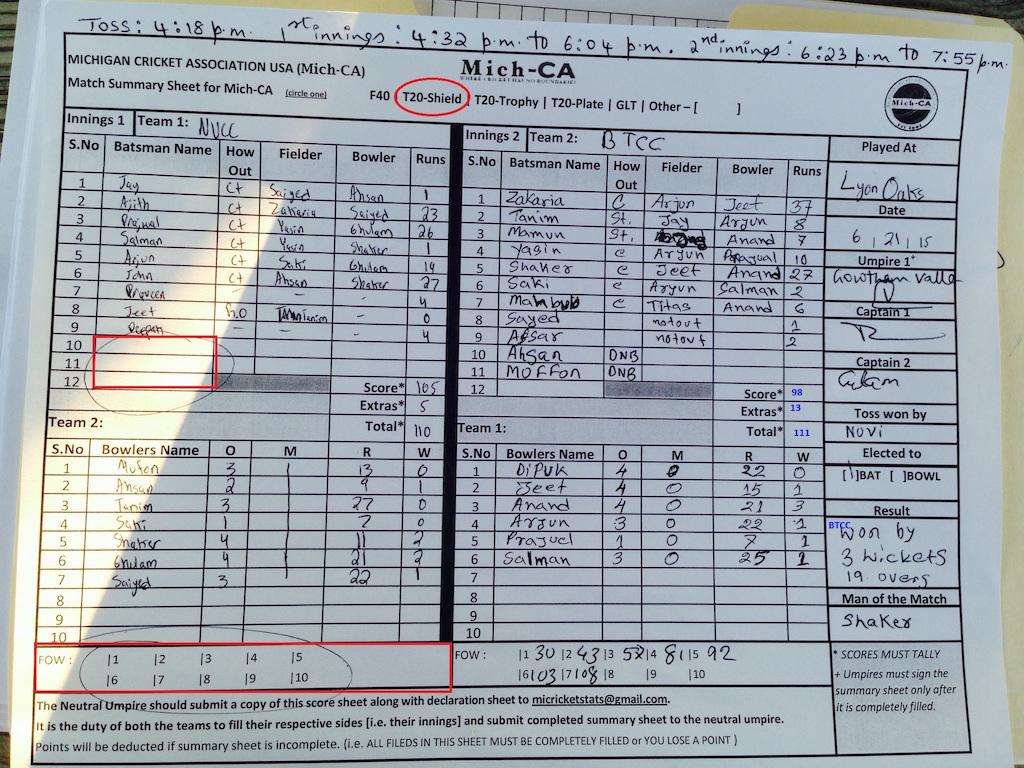 TOSS: 4:18 p.m. 1st innings: 4:32 p.m. to 6:04 p.m. 2nd innings: 6:23 p.m. to 7:55 p.m.
MICHIGAN CRICKET ASSOCIATION USA (Mich-CA)
Mich-CA
WHERE CRICKET HAS NO BOUNDARIES
Match Summary Sheet for Mich-CA (circle one) F40 | T20-Shield | T20-Trophy | T20-Plate | GLT | Other – [ ]
Mich-CA
Innings 1 Team 1: NVCC
S.No Batsman Name How Out Fielder Bowler Runs
1 Jay Ct Saiyed Ahsan 1
2 Ajith Ct Zakaria Saiyed 23
3 Prajual Ct Yasin Ghulam 26
4 Salman Ct Yasin Shaker 1
5 Arjun Ct Saki Ghulam 14
6 John Ct Ahsan Shaker 27
7 Praveen – – 4
8 Jeet R.O Tanim 0
9 Deepak – – 4
10
11
12
Score* 105
Extras* 5
Total* 110
Team 2:
S.No Bowlers Name O M R W
1 Mufon 3 13 0
2 Ahsan 2 9 1
3 Tanim 3 27 0
4 Saki 1 7 0
5 Shaker 4 11 2
6 Ghulam 4 21 2
7 Saiyed 3 22 1
8
9
10
FOW : |1 |2 |3 |4 |5
|6 |7 |8 |9 |10
Innings 2 Team 2: BTCC
S.No Batsman Name How Out Fielder Bowler Runs
1 Zakaria C Arjun Jeet 37
2 Tanim St. Jay Arjun 8
3 Mamun St. Anand 7
4 Yasin c Arjun Prajual 10
5 Shaker c Jeet Anand 27
6 Saki c Arjun Salman 2
7 Mahbub c Titas Anand 6
8 Sayed notout 1
9 Afsar notout 2
10 Ahsan DNB
11 MOFFON DNB
12
Score* 98
Extras* 13
Total* 111
Team 1:
S.No Bowlers Name O M R W
1 DIPUK 4 0 22 0
2 Jeet 4 0 15 1
3 Anand 4 0 21 3
4 Arjun 3 0 22 1
5 Prajuel 1 0 7 1
6 Salman 3 0 25 1
7
8
9
10
FOW : |1 30 |2 43 |3 52 |4 81 |5 92
|6 103 |7 108 |8 |9 |10
Played At
Lyon Oaks
Date
6 | 21 | 15
Umpire 1+
Gowtham Valla
Captain 1
Captain 2
Toss won by
Novi
Elected to
[\]BAT [ ]BOWL
Result
BTCC won by
3 wickets
19 overs
Man of the Match
Shaker
* SCORES MUST TALLY
+ Umpires must sign the
summary sheet only after
it is completely filled.
The Neutral Umpire should submit a copy of this score sheet along with declaration sheet to micricketstats@gmail.com.
It is the duty of both the teams to fill their respective sides [i.e. their innings] and submit completed summary sheet to the neutral umpire.
Points will be deducted if summary sheet is incomplete. (i.e. ALL FILEDS IN THIS SHEET MUST BE COMPLETELY FILLED or YOU LOSE A POINT )